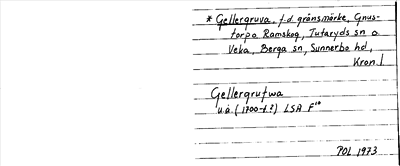 * Gellergruva, f.d. gränsmärke, Gnus-
torpa Ramskog, Tutaryds sn o
Veka, Berga sn, Sunnerbo hd,
Kron. l
Gellergrufwa
u.å. (1700-t.?) LSA F¹⁰
POL 1973